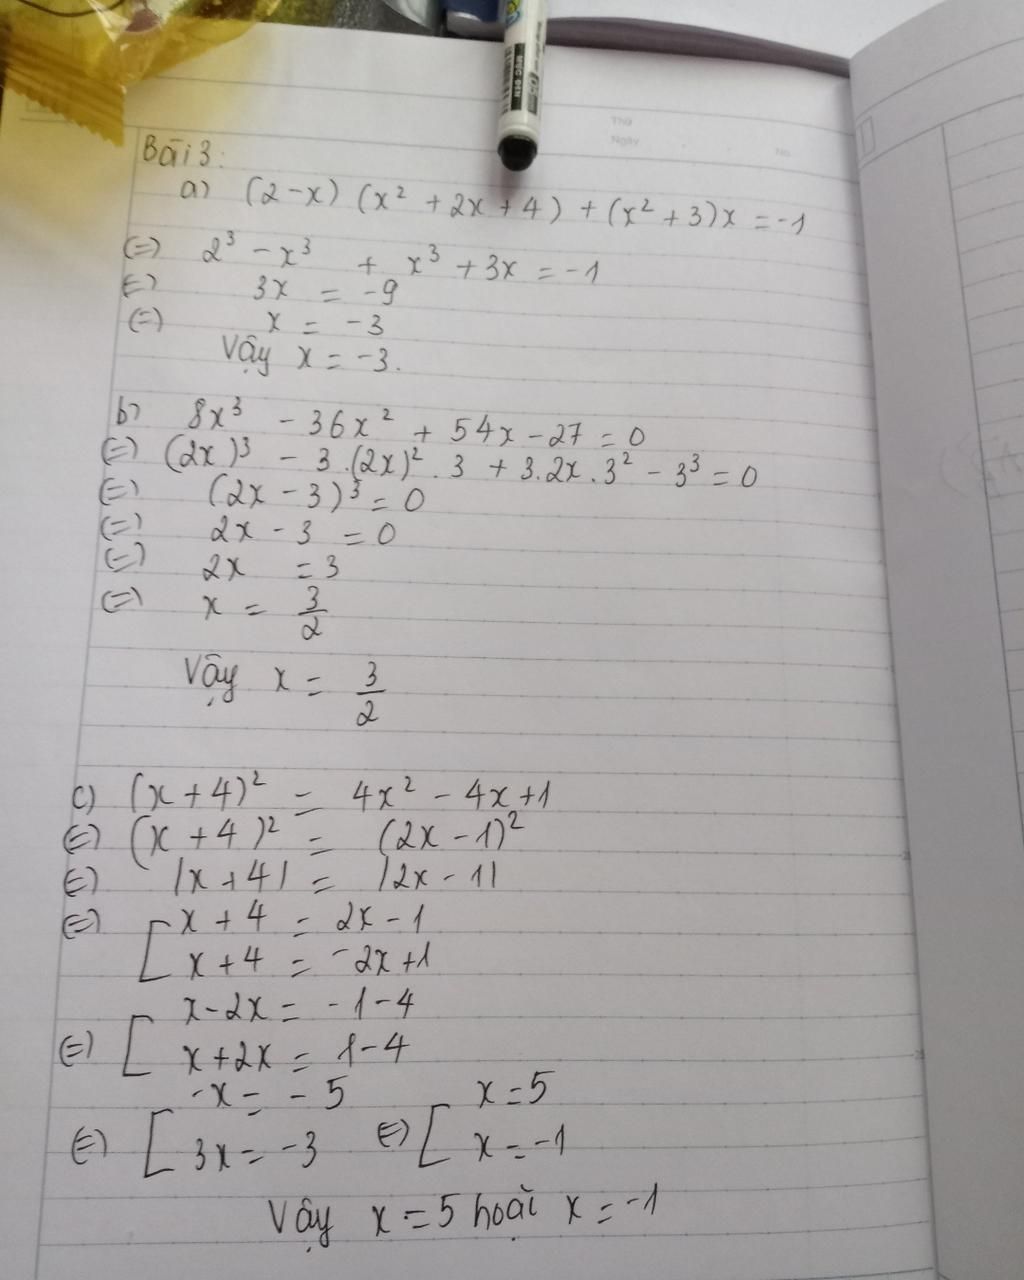 MỰC ĐEN
Thứ
Ngày
No.
Bài 3:
a) (2-x) (x² + 2x + 4) + (x² + 3)x = -1
(=) 2³ - x³ + x³ + 3x = -1
(=) 3x = -9
(=) x = -3
Vậy x = -3.
b) 8x³ - 36x² + 54x - 27 = 0
(=) (2x)³ - 3.(2x)².3 + 3.2x.3² - 3³ = 0
(=) (2x - 3)³ = 0
(=) 2x - 3 = 0
(=) 2x = 3
(=) x = 3/2
Vậy x = 3/2
c) (x + 4)² = 4x² - 4x + 1
(=) (x + 4)² = (2x - 1)²
(=) |x + 4| = |2x - 1|
(=) [ x + 4 = 2x - 1
x + 4 = -2x + 1
(=) [ x - 2x = -1 - 4
x + 2x = 1 - 4
(=) [ -x = -5 (=) [ x = 5
3x = -3 x = -1
Vậy x = 5 hoặc x = -1